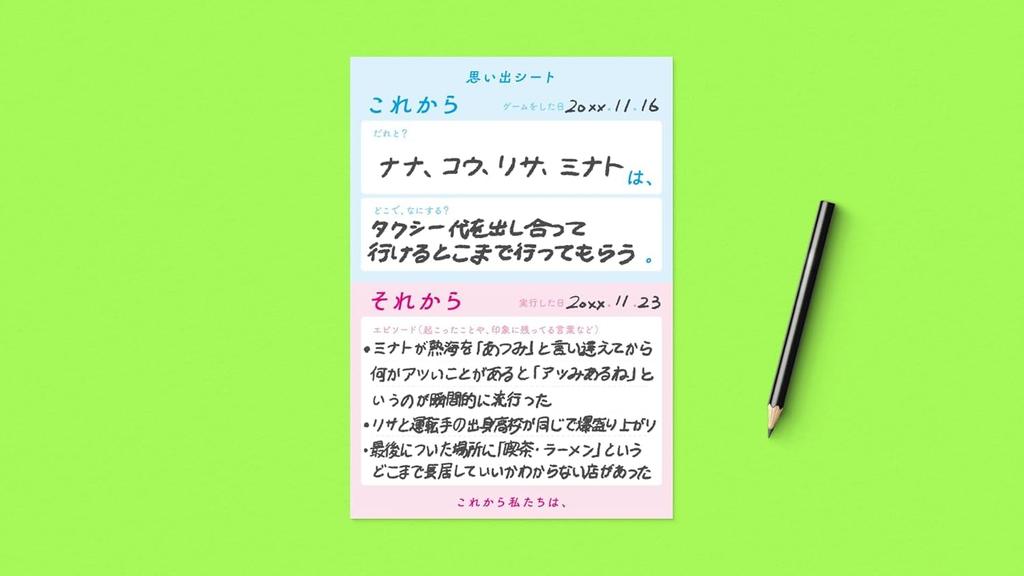 思い出シート
これから
ゲームをした日 20xx.11.16
だれと?
ナナ、コウ、リサ、ミナト は、
どこで、なにする?
タクシー代を出し合って
行けるとこまで行ってもらう 。
それから
実行した日 20xx.11.23
エピソード(起こったことや、印象に残ってる言葉など)
•ミナトが熱海を「あつみ」と言い違えてから
何かアツいことがあると「アツみあるね」と
いうのが瞬間的に流行った
•リサと運転手の出身高校が同じで爆盛り上がり
•最後についた場所に「喫茶・ラーメン」という
どこまで長居していいかわからない店があった
これから私たちは、